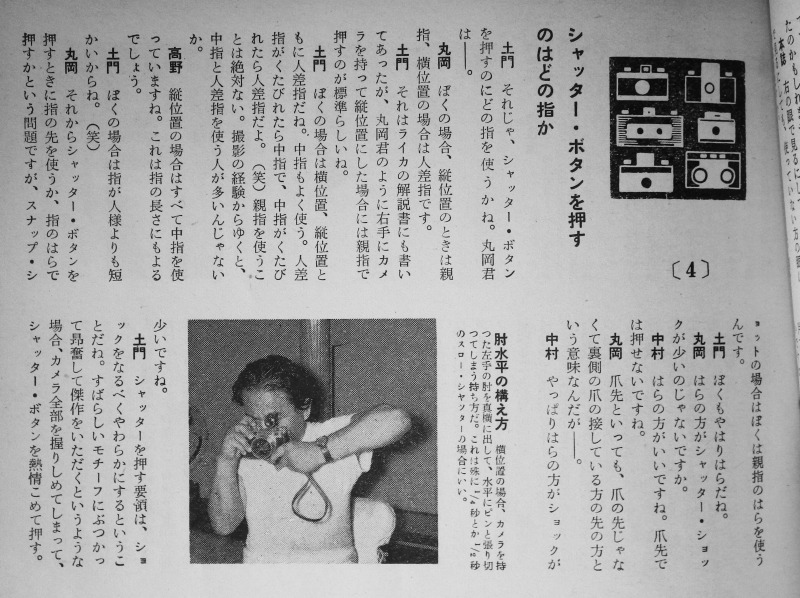 シャッター・ボタンを押す
のはどの指か
〔4〕
土門　それじゃ、シャッター・ボタン
を押すのにどの指を使うかね。丸岡君
は――。
丸岡　ぼくの場合、縦位置のときは親
指、横位置の場合は人差指です。
土門　それはライカの解説書にも書い
てあったが、丸岡君のように右手にカメ
ラを持って縦位置にした場合には親指で
押すのが標準らしいね。
土門　ぼくの場合は横位置、縦位置と
もに人差指だね。中指もよく使う。人差
指がくたびれたら中指で、中指がくたび
れたら人差指だよ。（笑）親指を使うこ
とは絶対ない。撮影の経験からゆくと、
中指と人差指を使う人が多いんじゃない
か。
高野　縦位置の場合はすべて中指を使
っていますね。これは指の長さにもよる
でしょう。
土門　ぼくの場合は指が人様よりも短
かいからね。（笑）
丸岡　それからシャッター・ボタンを
押すときに指の先を使うか、指のはらで
押すかという問題ですが、スナップ・シ
ョットの場合はぼくは親指のはらを使う
んです。
土門　ぼくもやはりはらだね。
丸岡　はらの方がシャッター・ショッ
クが少いのじゃないですか。
中村　はらの方がいいですね。爪先で
は押せないですね。
丸岡　爪先といっても、爪の先じゃな
くて裏側の爪の接している方の先の方と
いう意味なんだが――。
中村　やっぱりはらの方がショックが
肘水平の構え方　横位置の場合、カメラを持
った左手の肘を真横に出して、水平にピンと張り切
ってしまう持ち方だ。これは殊に1/4秒とか1/2秒
のスロー・シャッターの場合にいい。
少いですね。
土門　シャッターを押す要領は、ショ
ックをなるべくやわらかにするというこ
とだね。すばらしいモチーフにぶつかっ
て昂奮して傑作をいただくというような
場合、カメラ全部を握りしめてしまって、
シャッター・ボタンを熱情こめて押す。